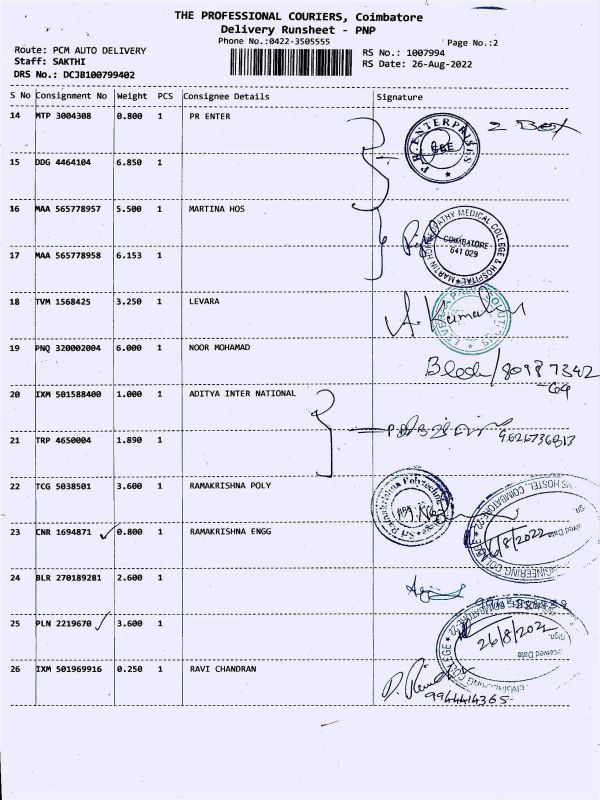 THE PROFESSIONAL COURIERS, Coimbatore
Delivery Runsheet - PNP
Phone No.:0422-3505555
Page No.:2
Route: PCM AUTO DELIVERY
RS No.: 1007994
Staff: SAKTHI
RS Date: 26-Aug-2022
DRS No.: DCJB100799402
S No Consignment No Weight PCS Consignee Details Signature
14 MTP 3004308 0.800 1 PR ENTER
P.R. ENTERPRISES
CBE
2 Box
15 DDG 4464104 6.850 1
16 MAA 565778957 5.500 1 MARTINA HOS
MARTIN HOMOEOPATHY MEDICAL COLLEGE & HOSPITAL
COIMBATORE
641 029
17 MAA 565778958 6.153 1
18 TVM 1568425 3.250 1 LEVARA
19 PNQ 320002004 6.000 1 NOOR MOHAMAD
20 IXM 501588400 1.000 1 ADITYA INTER NATIONAL
21 TRP 4650004 1.890 1
22 TCG 5038501 3.600 1 RAMAKRISHNA POLY
Sri Ramakrishna Polytechnic
23 CNR 1694871 0.800 1 RAMAKRISHNA ENGG
HOSTEL COIMBATORE-22
Sign.
26/8/2022
Received Date
ENGINEERING COLLEGE
24 BLR 270189281 2.600 1
25 PLN 2219670 3.600 1
26/8/2022
Sign.
Received Date
ENGINEERING COLLEGE
26 IXM 501969916 0.250 1 RAVI CHANDRAN
9944414365